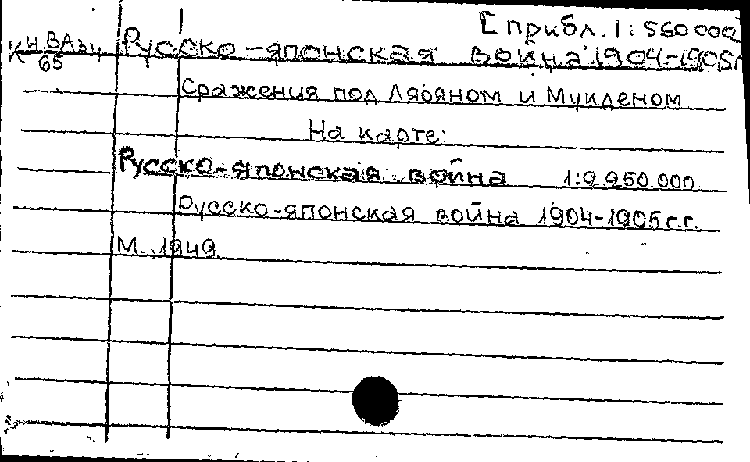 [прибл. 1:560000
Русско-японская война 1904-1905г
65
Сражения под Ляояном и Мукденом
На карте:
Русско-японская война 1:9 950 000
Русско-японская война 1904-1905г.г.
М., 1949.